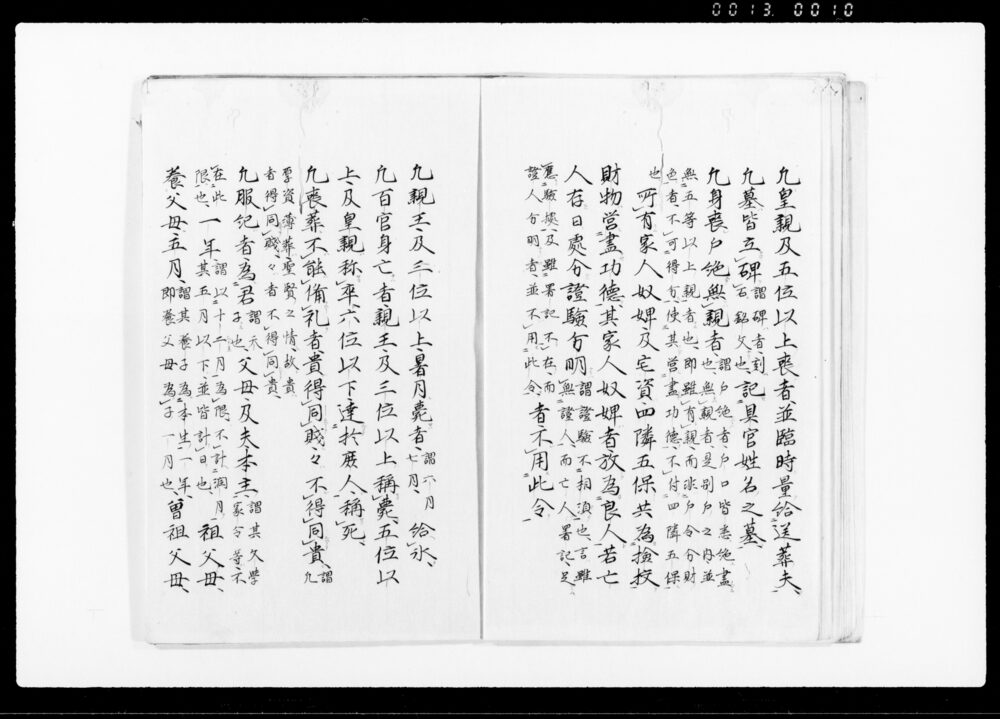 0013 0010
凡皇親及五位以上喪者並臨時量給送葬夫
凡墓皆立碑謂碑者刻石銘文也記具官姓名之墓
凡身喪戶絕無親者謂戶絕者戶口皆悉絕盡也無親者是別戶之內並
無五等以上親者也即雖有親而非戶令分財色者不可得分使其營盡功德不付四隣五保
也所有家人奴婢及宅資四隣五保共為撿挍
財物營盡功德其家人奴婢者放為良人若亡
人存日處分證驗分明謂證驗不相須也言雖無證人而亡人署記足
應驗據及雖署記不在而證人分明者並不用此令者不用此令
凡親王及三位以上暑月薨者謂六月七月給氷
凡百官身亡者親王及三位以上稱薨五位以
上及皇親称卒六位以下達於庶人称死
凡喪葬不能備礼者貴得同賤々不得同貴謂凡
厚資薄葬聖賢之情故貴者得同賤々者不得同貴
凡服紀者為君謂天子也父母及夫本主謂其文學家令等不
在此限也一年謂以十二月為限不計潤月其五月以下並皆計日也祖父母
養父母五月謂其養子為本生一年即養父母為子一月也曾祖父母